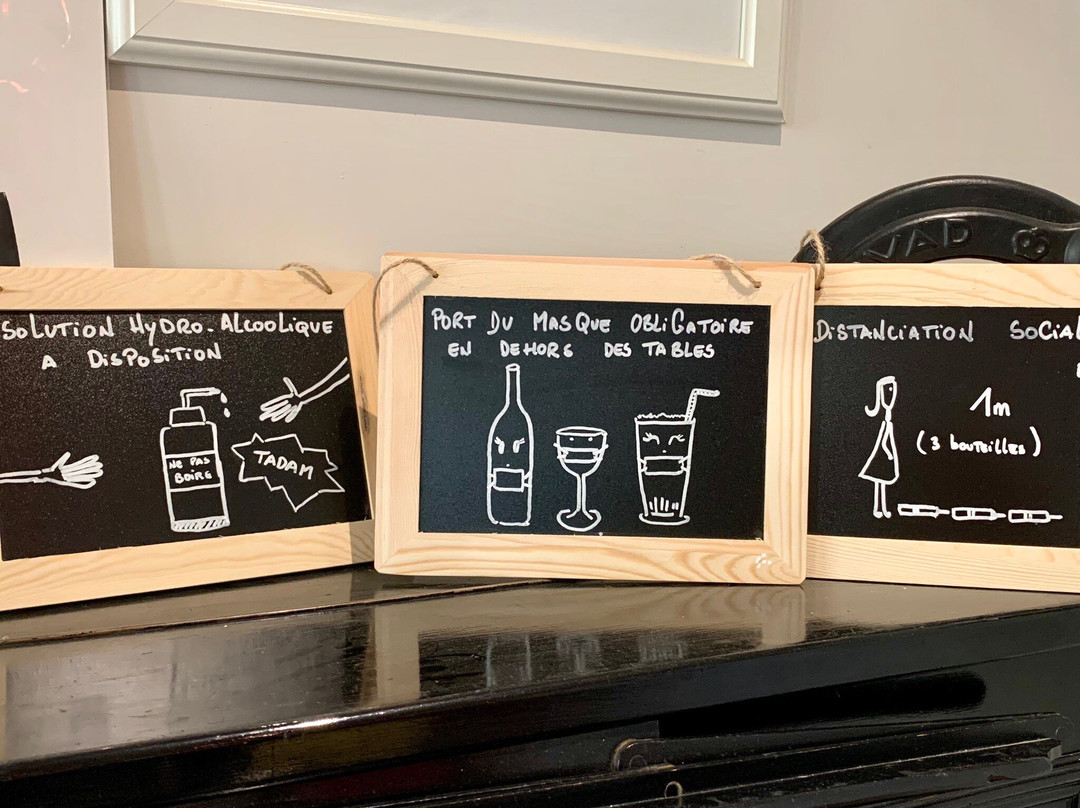 SOLUTION HYDRO-ALCOOLIQUE
A DISPOSITION
NE PAS
BOIRE
TADAM
PORT DU MASQUE OBLIGATOIRE
EN DEHORS DES TABLES
DISTANCIATION SOCIAL
1m
(3 bouteilles)
VAD